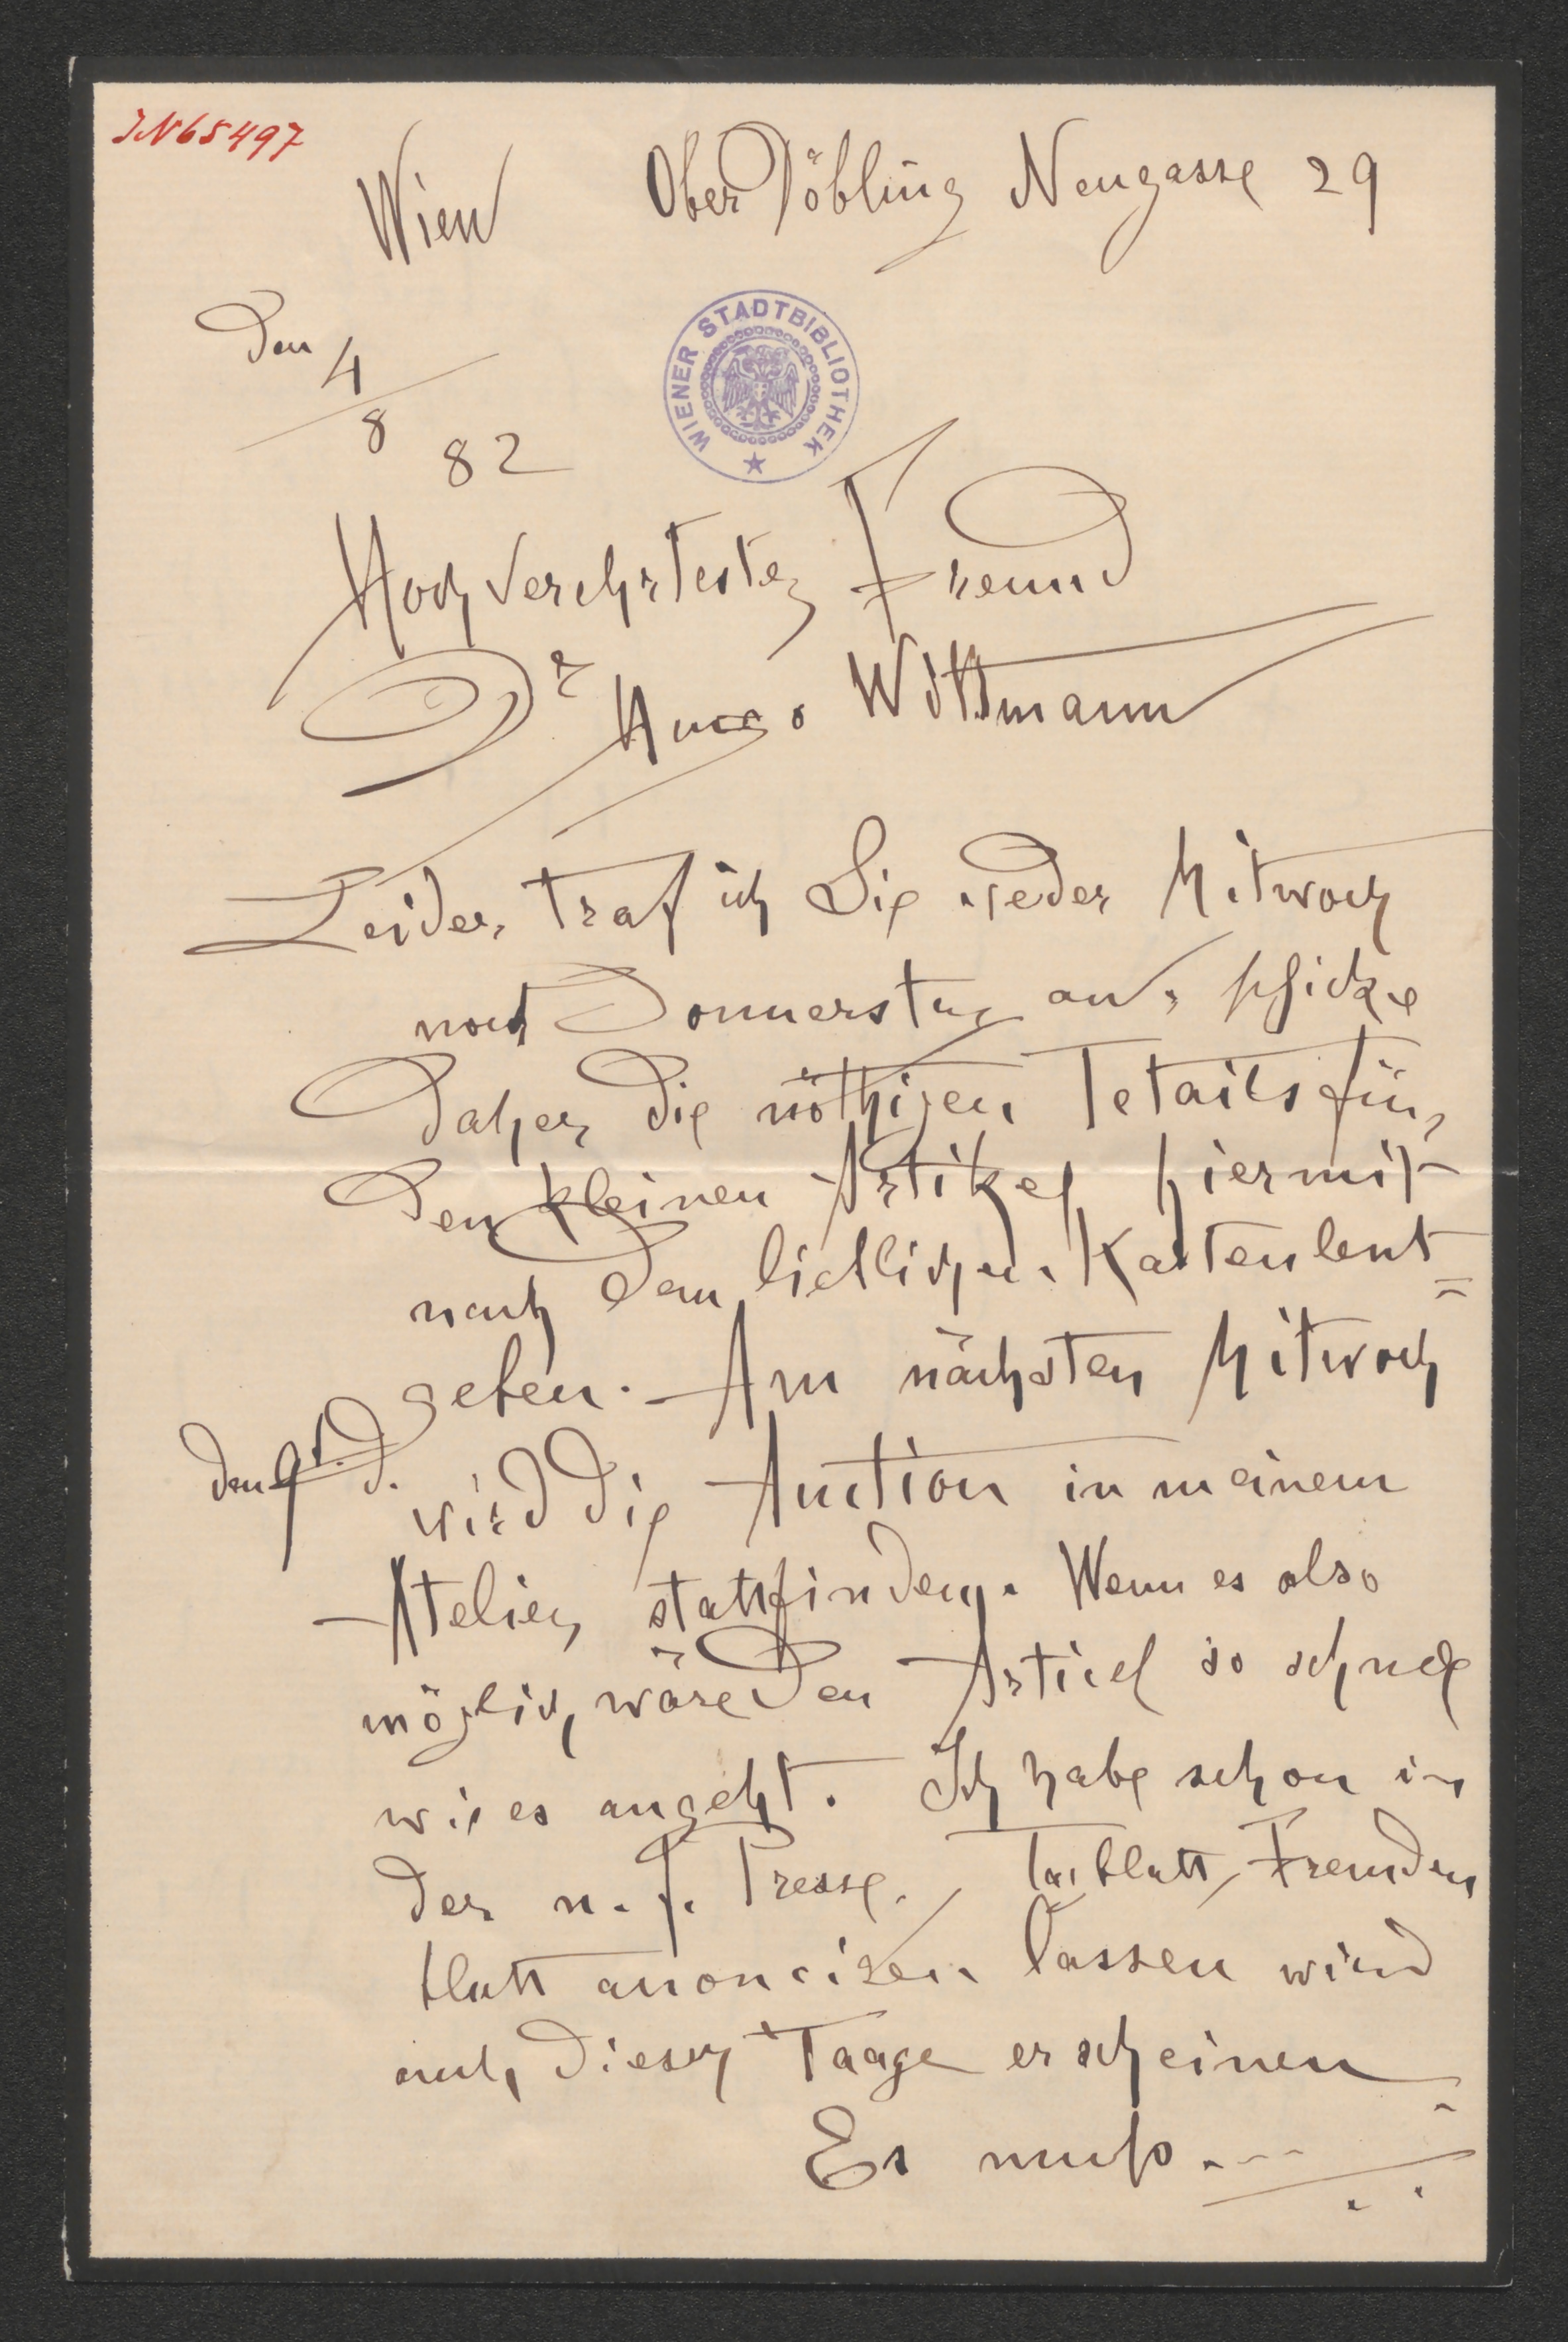 IN 65497
Wien Ober Döbling Neugasse 29
WIENER STADTBIBLIOTHEK
Den 4/8 82
Hochverehrtester Freund
Dr Hugo Wittmann
Leider traf ich Sie weder Mitwoch
noch Donnerstag an, schicke
daher die nöthigen Tetails für
den kleinen Artikel hiermit
nach dem lieblichen Kaltenleut=
geben. Am nächsten Mitwoch
den 9t. d. wird die Auction in meinem
Atelier stattfinden. Wenn es also
möglich, wäre den Articel so schnell
wie es angeht. Ich habe schon in
der n. f. Presse, Tagblatt, Fremden
blatt anonciren lassen wird
auch dieser Taage erscheinen
Es muß ...